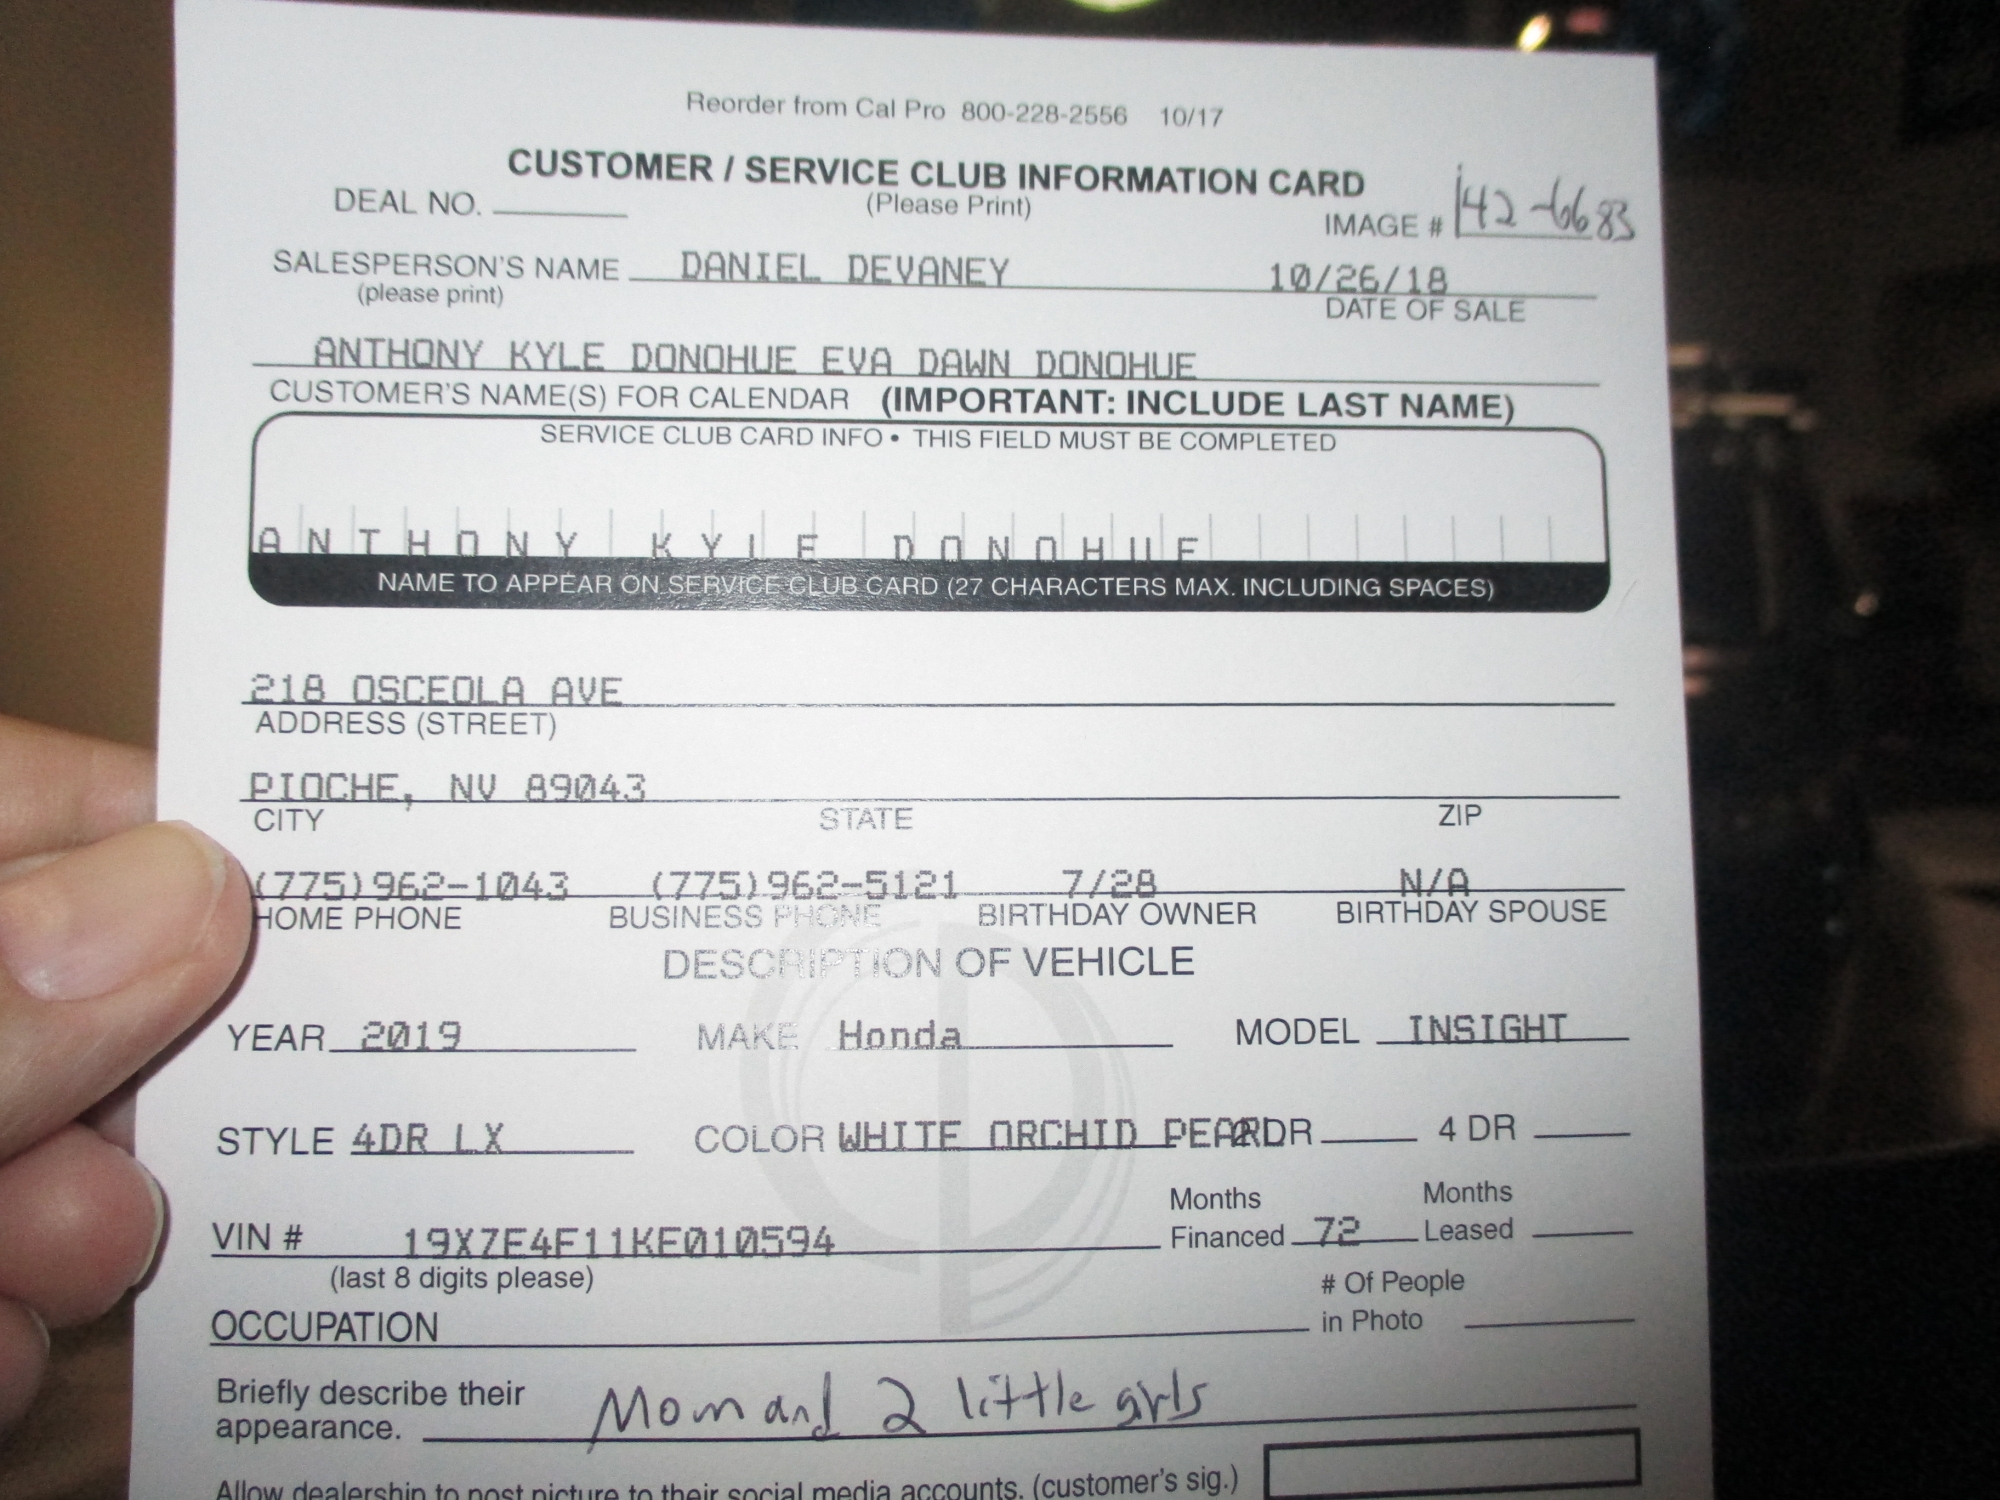 Reorder from Cal Pro 800-228-2556 10/17
CUSTOMER / SERVICE CLUB INFORMATION CARD
DEAL NO. (Please Print) IMAGE # 142-6683
SALESPERSON'S NAME DANIEL DEVANEY 10/26/18
(please print) DATE OF SALE
ANTHONY KYLE DONOHUE EVA DAWN DONOHUE
CUSTOMER'S NAME(S) FOR CALENDAR (IMPORTANT: INCLUDE LAST NAME)
SERVICE CLUB CARD INFO • THIS FIELD MUST BE COMPLETED
ANTHONY KYLE DONOHUE
NAME TO APPEAR ON SERVICE CLUB CARD (27 CHARACTERS MAX. INCLUDING SPACES)
218 OSCEOLA AVE
ADDRESS (STREET)
PIOCHE, NV 89043
CITY STATE ZIP
(775)962-1043 (775)962-5121 7/28 N/A
HOME PHONE BUSINESS PHONE BIRTHDAY OWNER BIRTHDAY SPOUSE
DESCRIPTION OF VEHICLE
YEAR 2019 MAKE Honda MODEL INSIGHT
STYLE 4DR LX COLOR WHITE ORCHID PEARL 2 DR 4 DR
Months Months
VIN # 19XZE4F11KE010594 Financed 72 Leased
(last 8 digits please) # Of People
OCCUPATION in Photo
Briefly describe their
appearance. Mom and 2 little girls
Allow dealership to post picture to their social media accounts. (customer's sig.)